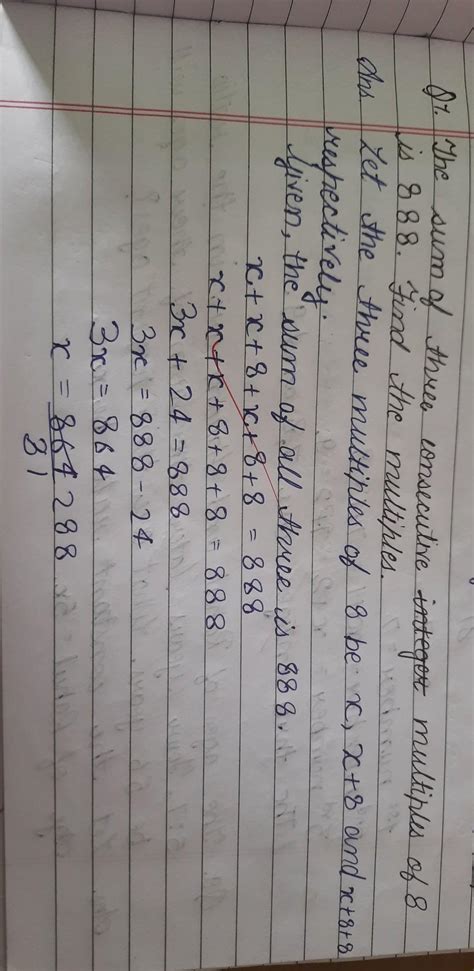 Q7. The sum of three consecutive integer multiples of 8
is 888. Find the multiples.
Ans. Let the three multiples of 8 be x, x+8 and x+8+8
respectively.
Given, the sum of all three is 888.
x + x + 8 + x + 8 + 8 = 888
x + x + x + 8 + 8 + 8 = 888
3x + 24 = 888
3x = 888 - 24
3x = 864
x = 864 288
31